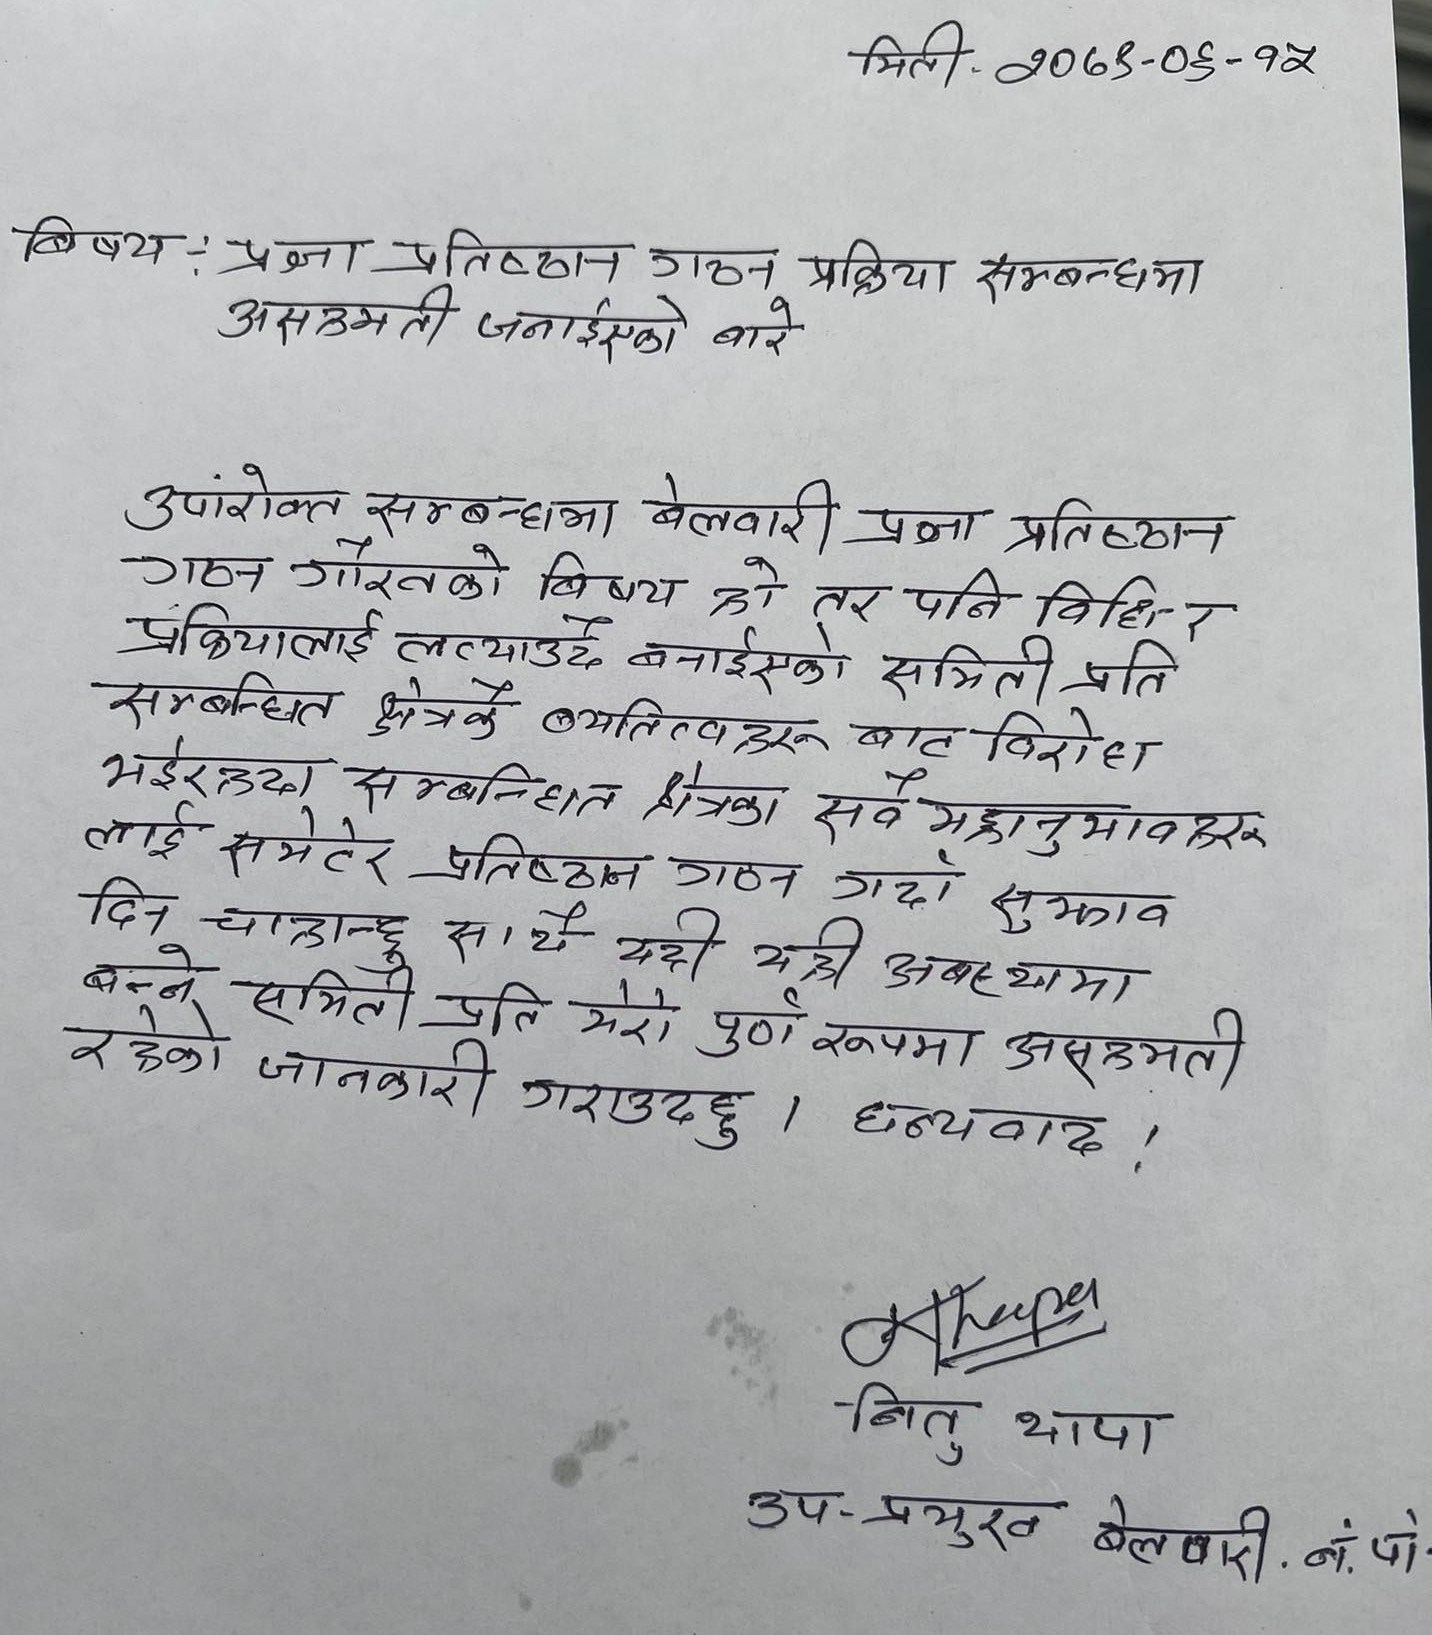 मिती. २०७९-०६-१५
बिषय :- प्रज्ञा प्रतिष्ठान गठन प्रक्रिया सम्बन्धमा
असहमती जनाईएको बारे
उपरोक्त सम्बन्धमा बेलवारी प्रज्ञा प्रतिष्ठान
गठन गौरवको बिषय हो तर पनि विधि र
प्रक्रियालाई लत्याउदै बनाईएको समिती प्रति
सम्बन्धित क्षेत्रकै व्यतित्वहरू बाट विरोध
भईरहदा सम्बन्धित क्षेत्रका सवै महानुभावहरू
लाई समेटेर प्रतिष्ठान गठन गर्दा सुझाव
दिन चाहान्छु साथै यदी यही अबस्थामा
बन्ने समिती प्रति मेरो पुर्ण रूपमा असहमती
रहेको जानकारी गराउदछु । धन्यवाद !
नितु थापा
उप-प्रमुख बेलबारी. न. पा.